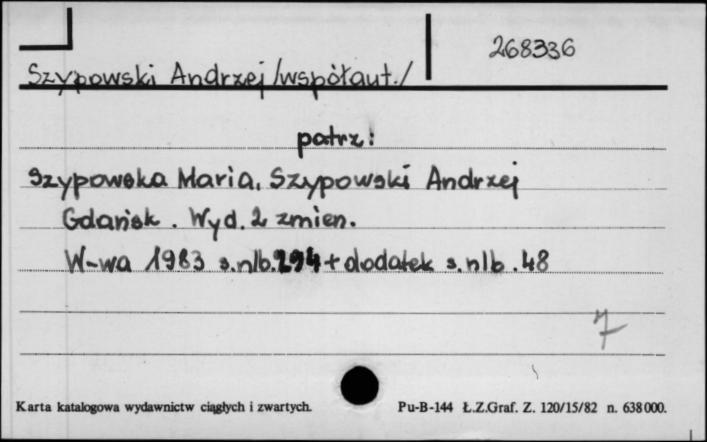 268336
Szypowski Andrzej /współaut./
patrz:
Szypowska Maria, Szypowski Andrzej
Gdańsk. Wyd. 2 zmien.
W-wa 1983 s.nlb. 294 + dodatek s.nlb. 48
7
Karta katalogowa wydawnictw ciągłych i zwartych. Pu-B-144 Ł.Z.Graf. Z. 120/15/82 n. 638000.